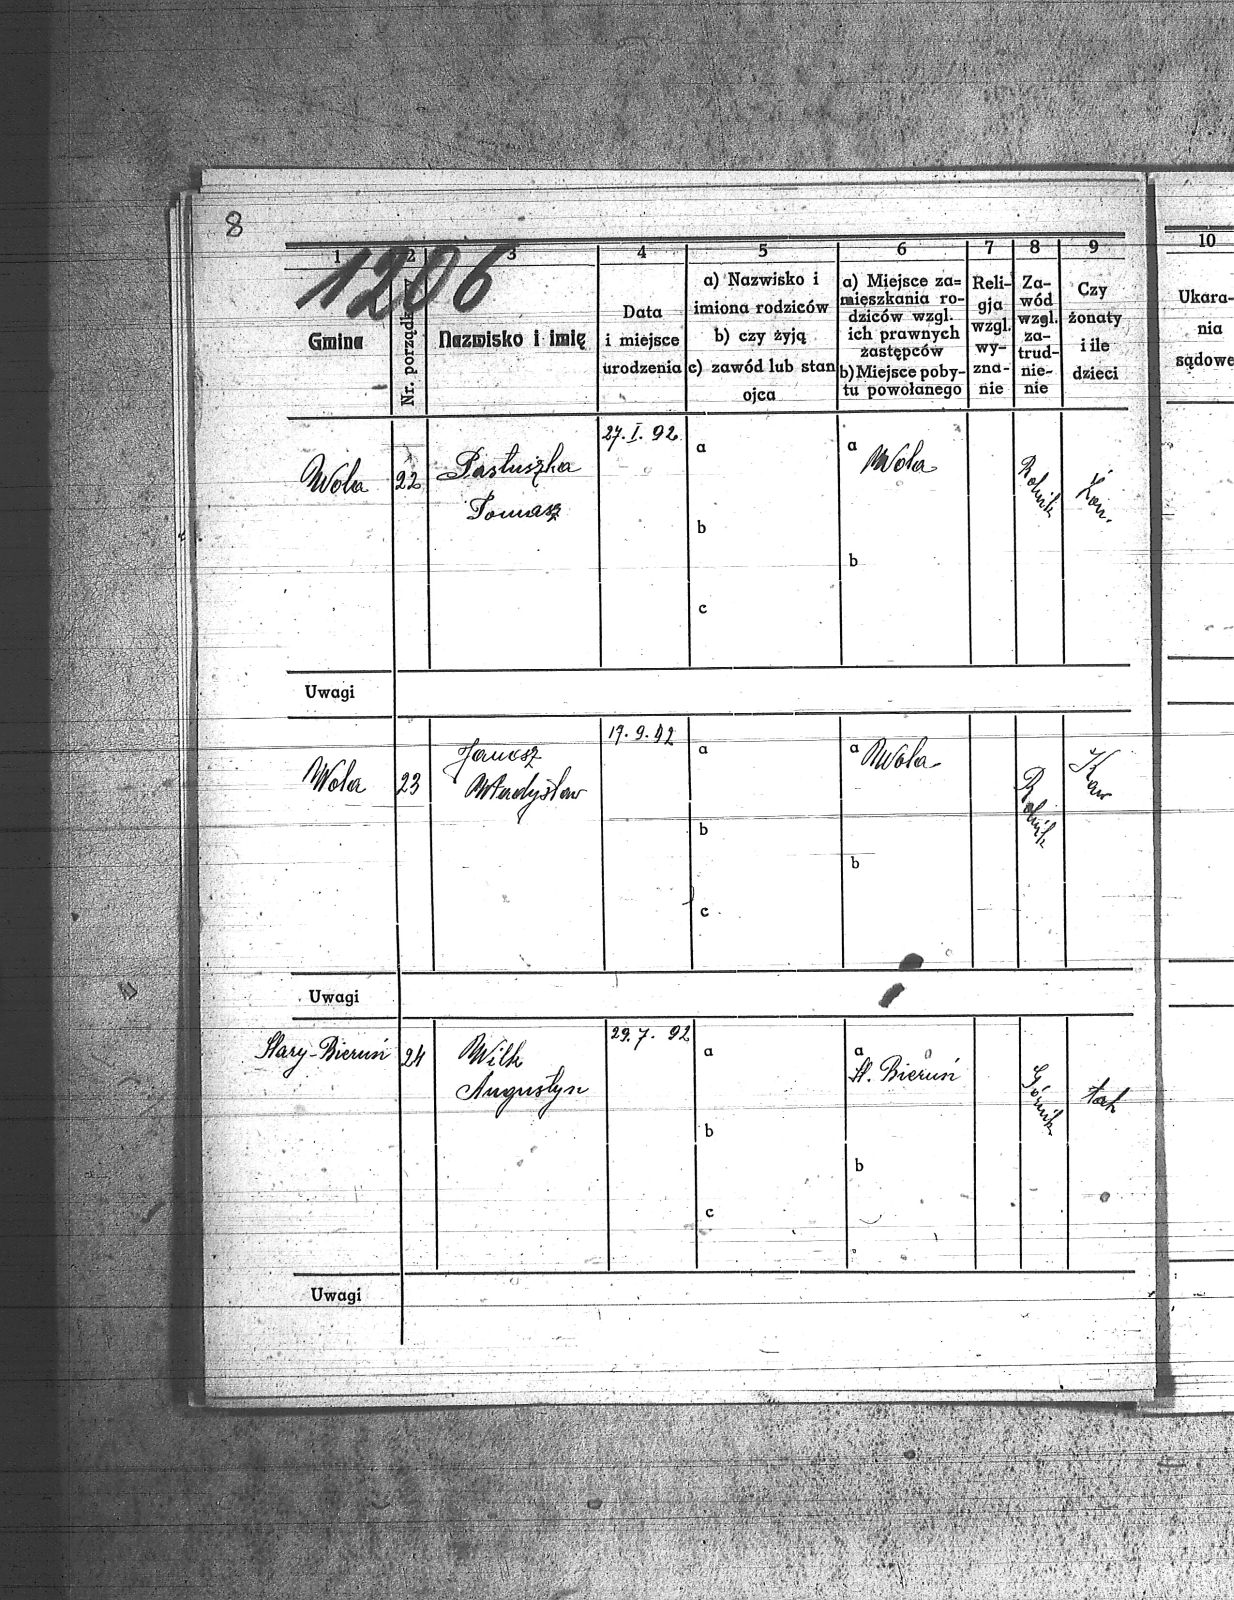 8
1206
1
2
3
4
5
6
7
8
9
10
Gmina
Nr. porządk
Nazwisko i imię
Data
i miejsce
urodzenia
a) Nazwisko i
imiona rodziców
b) czy żyją
c) zawód lub stan
ojca
a) Miejsce za=
mięszkania ro-
dziców wzgl.
ich prawnych
zastępców
b) Miejsce poby-
tu powołanego
Reli-
gja
wzgl.
wy-
zna-
nie
Za-
wód
wzgl.
za-
trud-
nie-
nie
Czy
żonaty
i ile
dzieci
Ukara-
nia
sądowe
Wola
22
Pastuszka
Tomasz
27. I. 92
a
b
c
a Wola
b
Rolnik
Uwagi
Wola
23
Janosz
Władysław
a
b
c
a Wola
b
Rolnik
Kaw
Uwagi
Stary-Bieruń
24
Wilk
Augustyn
29. 7. 92
a
b
c
a
St. Bieruń
b
Górnik
tak
Uwagi